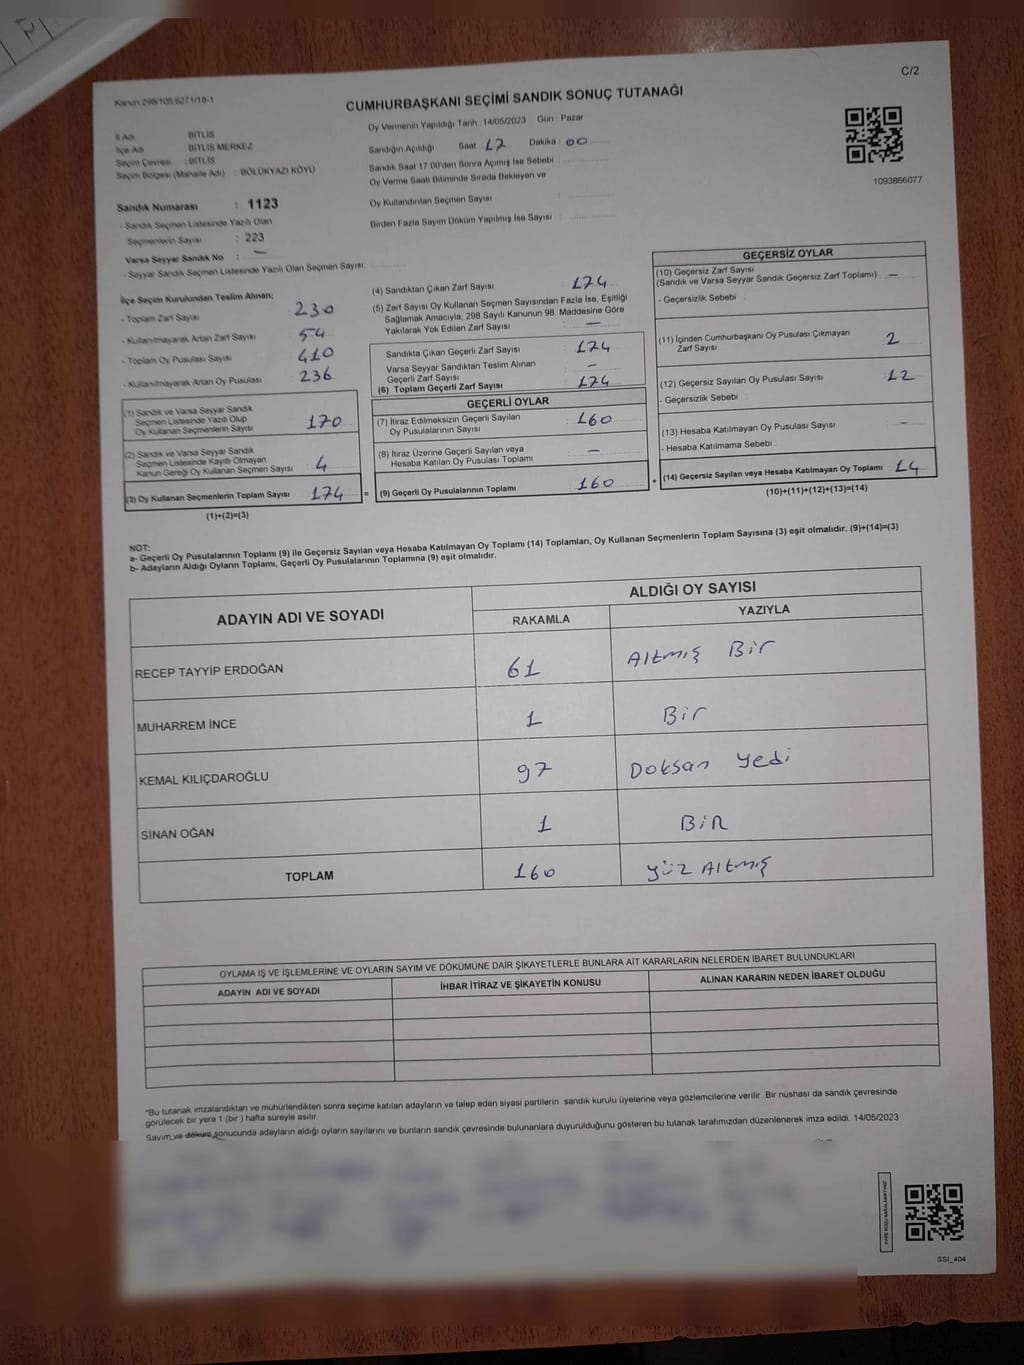 C/2
Kanun:298/105,6271/18-1
CUMHURBAŞKANI SEÇİMİ SANDIK SONUÇ TUTANAĞI
İl Adı : BİTLİS
İlçe Adı : BİTLİS MERKEZ
Seçim Çevresi : BİTLİS
Seçim Bölgesi (Mahalle Adı) : BÖLÜKYAZI KÖYÜ
Oy Vermenin Yapıldığı Tarih : 14/05/2023 Gün : Pazar
Sandığın Açıldığı Saat : 17 Dakika : 00
Sandık Saat 17:00'den Sonra Açılmış İse Sebebi :
Oy Verme Saati Bitiminde Sırada Bekleyen ve
Oy Kullandırılan Seçmen Sayısı :
Birden Fazla Sayım Döküm Yapılmış İse Sayısı :
1093866077
Sandık Numarası : 1123
- Sandık Seçmen Listesinde Yazılı Olan
Seçmenlerin Sayısı : 223
Varsa Seyyar Sandık No : —
- Seyyar Sandık Seçmen Listesinde Yazılı Olan Seçmen Sayısı:
İlçe Seçim Kurulundan Teslim Alınan;
- Toplam Zarf Sayısı : 230
- Kullanılmayarak Artan Zarf Sayısı : 54
- Toplam Oy Pusulası Sayısı : 410
- Kullanılmayarak Artan Oy Pusulası : 236
(1) Sandık ve Varsa Seyyar Sandık
Seçmen Listesinde Yazılı Olup
Oy Kullanan Seçmenlerin Sayısı : 170
(2) Sandık ve Varsa Seyyar Sandık
Seçmen Listesinde Kayıtlı Olmayan
Kanun Gereği Oy Kullanan Seçmen Sayısı : 4
(3) Oy Kullanan Seçmenlerin Toplam Sayısı : 174 =
(1)+(2)=(3)
(4) Sandıktan Çıkan Zarf Sayısı : 174
(5) Zarf Sayısı Oy Kullanan Seçmen Sayısından Fazla İse, Eşitliği
Sağlamak Amacıyla; 298 Sayılı Kanunun 98. Maddesine Göre
Yakılarak Yok Edilen Zarf Sayısı : —
Sandıkta Çıkan Geçerli Zarf Sayısı : 174
Varsa Seyyar Sandıktan Teslim Alınan
Geçerli Zarf Sayısı : —
(6) Toplam Geçerli Zarf Sayısı : 174
GEÇERLİ OYLAR
(7) İtiraz Edilmeksizin Geçerli Sayılan
Oy Pusulalarının Sayısı : 160
(8) İtiraz Üzerine Geçerli Sayılan veya
Hesaba Katılan Oy Pusulası Toplamı : —
(9) Geçerli Oy Pusulalarının Toplamı : 160 +
GEÇERSİZ OYLAR
(10) Geçersiz Zarf Sayısı
(Sandık ve Varsa Seyyar Sandık Geçersiz Zarf Toplamı) : —
- Geçersizlik Sebebi :
(11) İçinden Cumhurbaşkanı Oy Pusulası Çıkmayan
Zarf Sayısı : 2
(12) Geçersiz Sayılan Oy Pusulası Sayısı : 12
- Geçersizlik Sebebi :
(13) Hesaba Katılmayan Oy Pusulası Sayısı : —
- Hesaba Katılmama Sebebi :
(14) Geçersiz Sayılan veya Hesaba Katılmayan Oy Toplamı : 14
(10)+(11)+(12)+(13)=(14)
NOT:
a- Geçerli Oy Pusulalarının Toplamı (9) ile Geçersiz Sayılan veya Hesaba Katılmayan Oy Toplamı (14) Toplamları, Oy Kullanan Seçmenlerin Toplam Sayısına (3) eşit olmalıdır. (9)+(14)=(3)
b- Adayların Aldığı Oyların Toplamı, Geçerli Oy Pusulalarının Toplamına (9) eşit olmalıdır.
ADAYIN ADI VE SOYADI
ALDIĞI OY SAYISI
RAKAMLA YAZIYLA
RECEP TAYYİP ERDOĞAN 61 Altmış Bir
MUHARREM İNCE 1 Bir
KEMAL KILIÇDAROĞLU 97 Doksan Yedi
SİNAN OĞAN 1 BİR
TOPLAM 160 Yüz Altmış
OYLAMA İŞ VE İŞLEMLERİNE VE OYLARIN SAYIM VE DÖKÜMÜNE DAİR ŞİKAYETLERLE BUNLARA AİT KARARLARIN NELERDEN İBARET BULUNDUKLARI
ADAYIN ADI VE SOYADI İHBAR İTİRAZ VE ŞİKAYETİN KONUSU ALINAN KARARIN NEDEN İBARET OLDUĞU
*Bu tutanak imzalandıktan ve mühürlendikten sonra seçime katılan adayların ve talep eden siyasi partilerin sandık kurulu üyelerine veya gözlemcilerine verilir. Bir nüshası da sandık çevresinde
görülecek bir yere 1 (bir) hafta süreyle asılır.
Sayım ve döküm sonucunda adayların aldığı oyların sayılarını ve bunların sandık çevresinde bulunanlara duyurulduğunu gösteren bu tutanak tarafımızdan düzenlenerek imza edildi. 14/05/2023
SSI_404